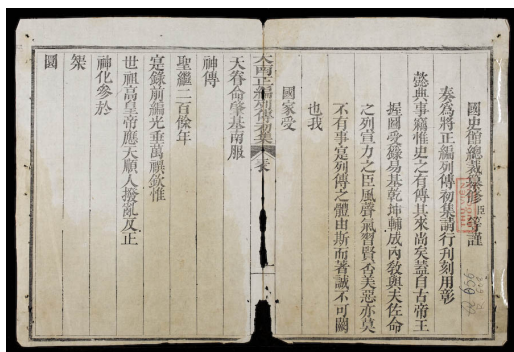 國史館總裁纂修臣等謹
奏為將正編列傳初集請行刊刻用彰
懿典事竊惟史之有傳其來尚矣蓋自古帝王
握圖受籙易基乾坤輔成內敎與夫佐命
之列宣力之臣風聲氣習賢否美惡亦莫
不有事寔列傳之體由斯而著誠不可闕
也我
國家受
大南正編列傳初集
天眷命肇基南服
神傳
聖繼二百餘年
寔錄前編光垂萬禩欽惟
世祖高皇帝應天順人撥亂反正
神化參於